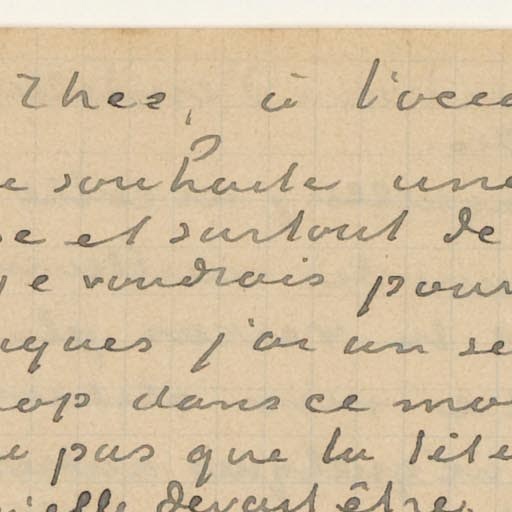 Thez, à l'occa
e souhaite une
se et surtout de
je voudrais pour
ques j'ai un se
op dans ce mo
pas que tu l'éte
elle devait être